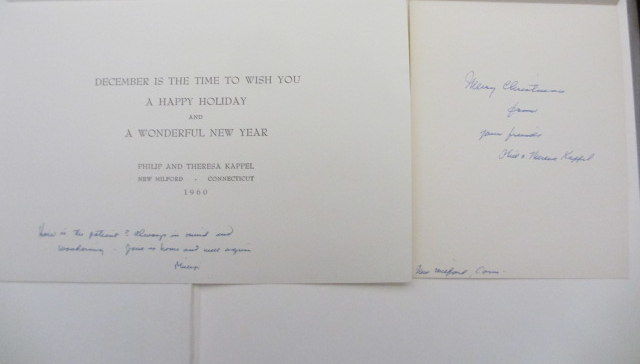 DECEMBER IS THE TIME TO WISH YOU
A HAPPY HOLIDAY
AND
A WONDERFUL NEW YEAR
PHILIP AND THERESA KAPPEL
NEW MILFORD - CONNECTICUT
1960
How is the patient? Always in mind and
wondering - home and well again
Merry Christmas
from
your friends
Phil & Theresa Kappel
New Milford, Conn.